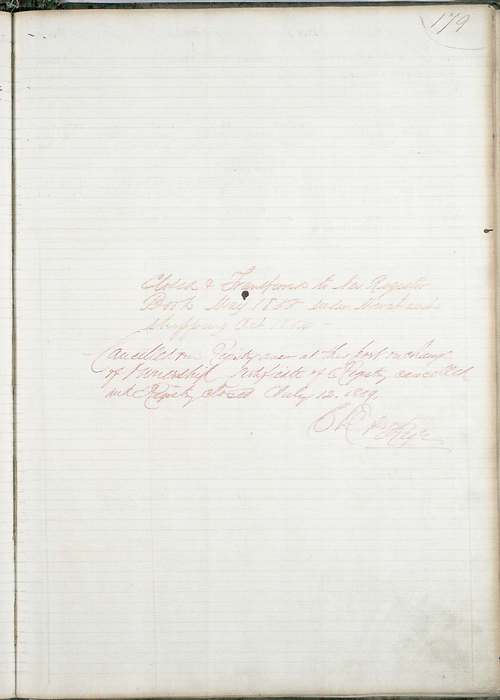 179
Closed & Transferred to New Register
Book May 1855 under Merchant
Shipping Act
Cancelled on Registry anew at this port on change
of Ownership Certificate of Registry cancelled
and Registry closed July 12.